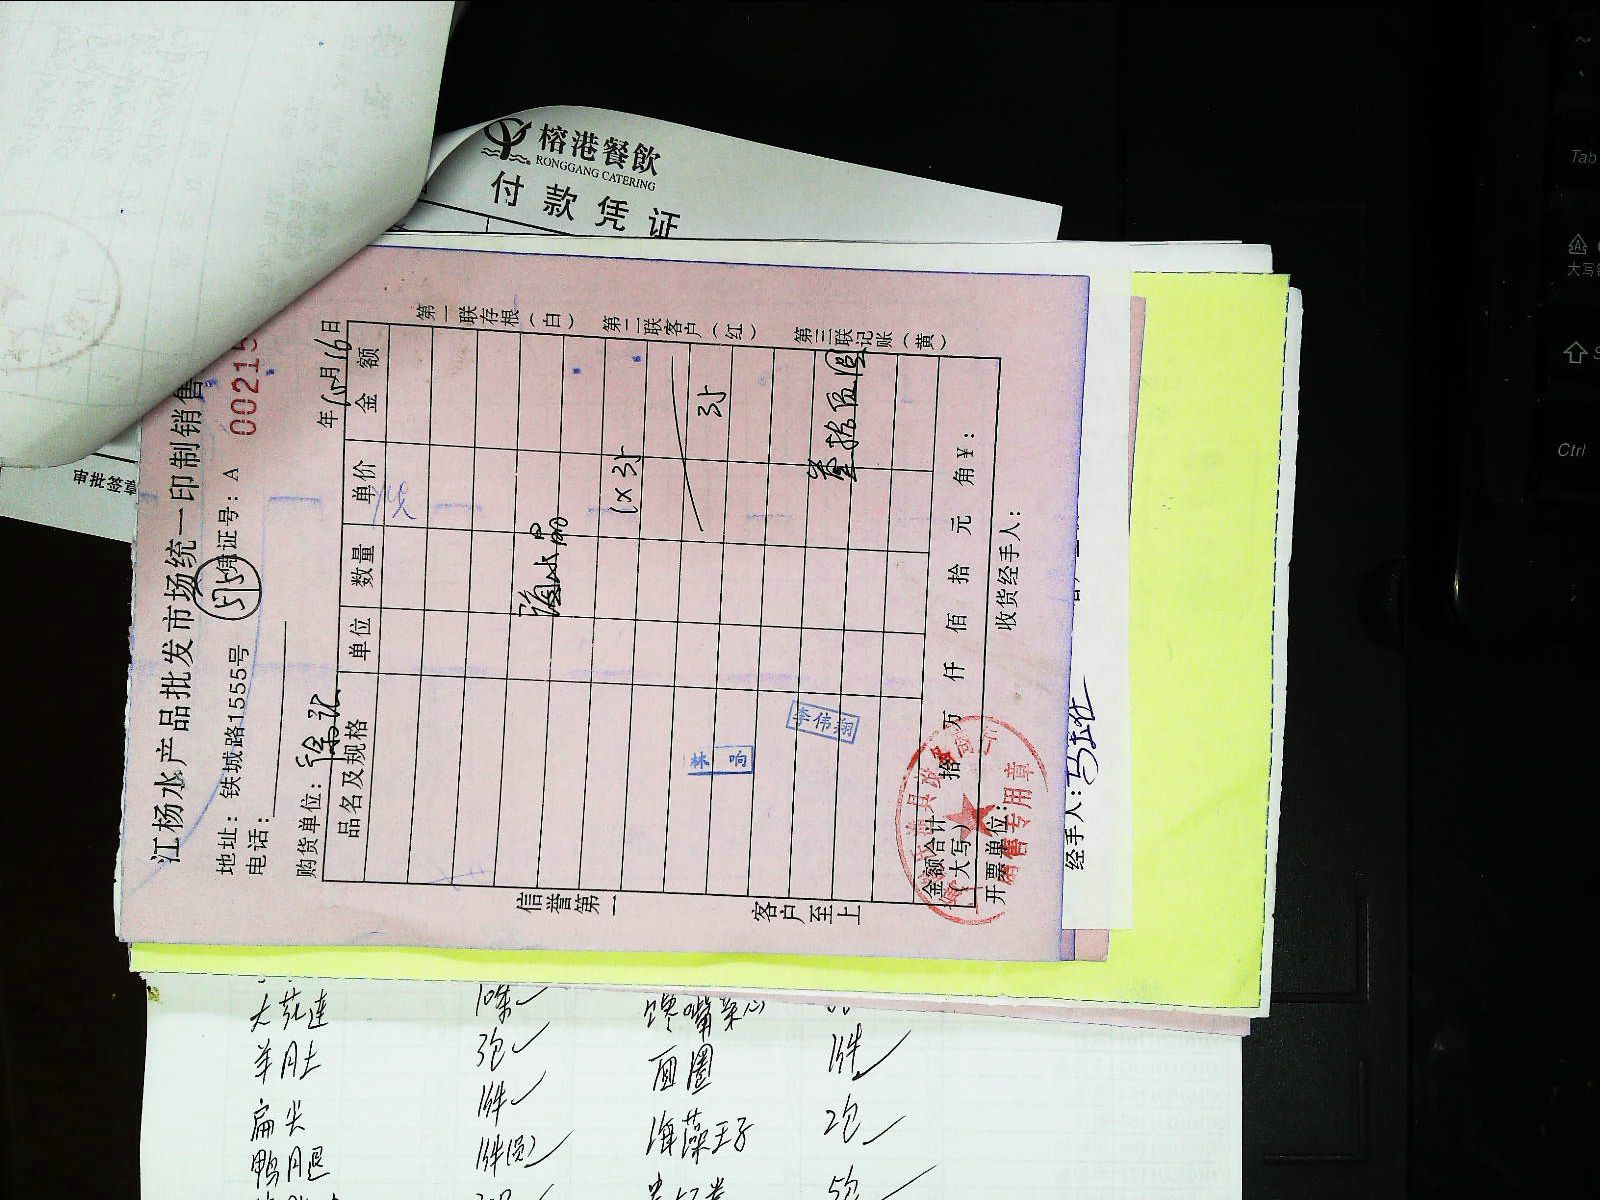 榕港餐飲
RONGGANG CATERING
付款凭证
江杨水产品批发市场统一印制销售
地址：铁城路1555号
凭证号：A 00215
电话：
购货单位：
年 月16日
品名及规格 单位 数量 单价 金额
1×35
35
叁拾伍圆
金额合计（大写） 拾 万 仟 佰 拾 元 角 ¥：
开票单位：
收货经手人：
第一联存根（白）
第二联客户（红）
第三联记账（黄）
信誉第一
客户至上
林响
李伟翔
售专用章
经手人：
大花连
羊月土 3包
扁尖 1件
鸭腿 1件
馋嘴菜心
面圈 1件
海藻王子 2包
5包
Tab
大写
Ctrl